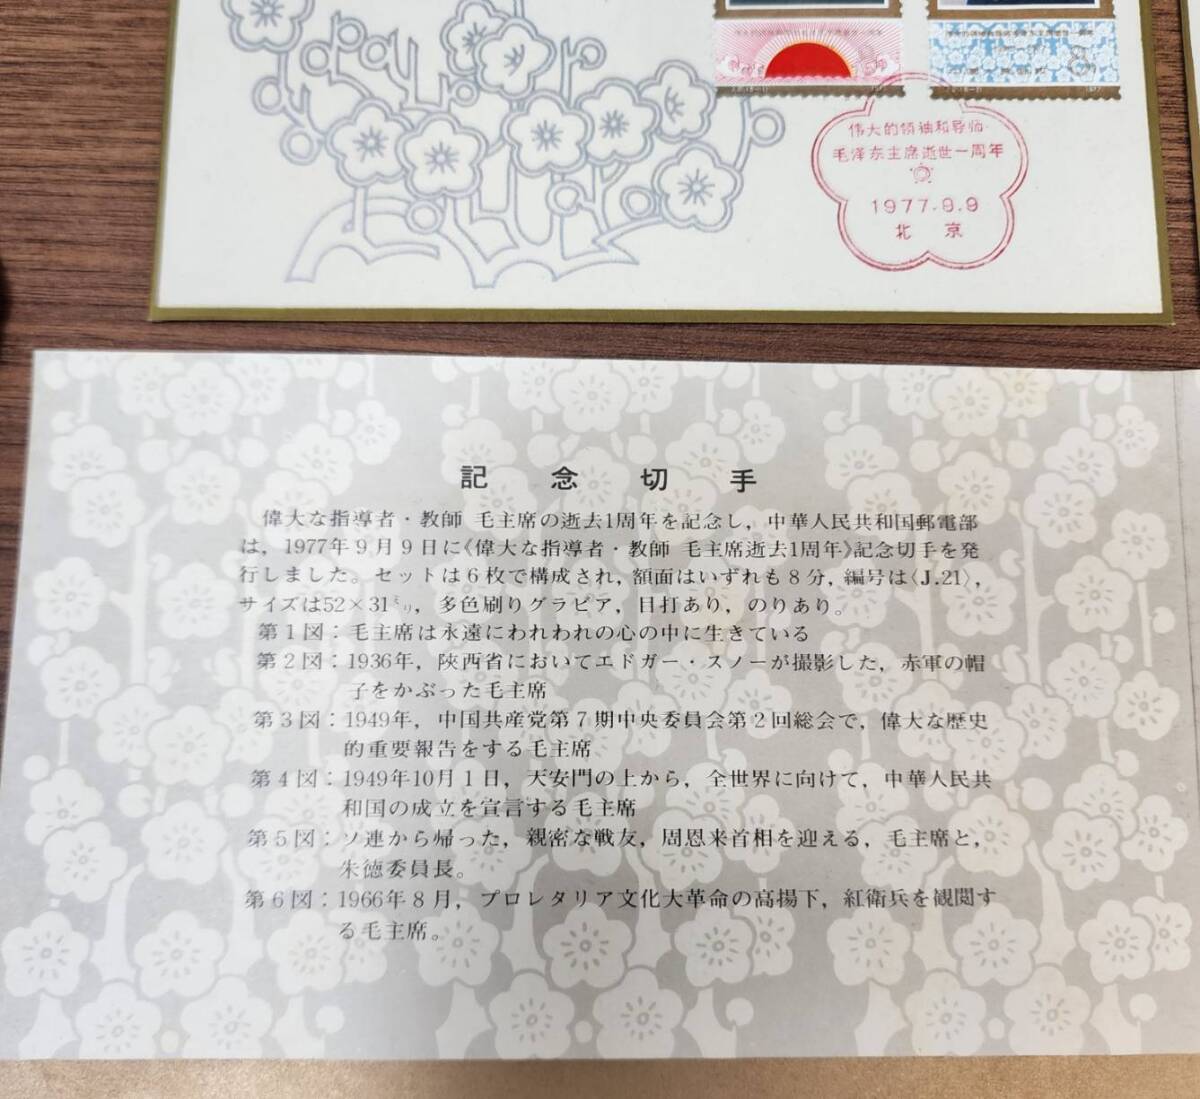 伟大的领袖和导师
毛泽东主席逝世一周年
1977.9.9
北京
記念切手
偉大な指導者・教師 毛主席の逝去1周年を記念し，中華人民共和国郵電部
は，1977年9月9日に《偉大な指導者・教師 毛主席逝去1周年》記念切手を発
行しました。セットは6枚で構成され，額面はいずれも8分，編号は〈J.21〉，
サイズは52×31ミリ，多色刷りグラビア，目打あり，のりあり。
第1図：毛主席は永遠にわれわれの心の中に生きている
第2図：1936年，陝西省においてエドガー・スノーが撮影した，赤軍の帽
子をかぶった毛主席
第3図：1949年，中国共産党第7期中央委員会第2回総会で，偉大な歴史
的重要報告をする毛主席
第4図：1949年10月1日，天安門の上から，全世界に向けて，中華人民共
和国の成立を宣言する毛主席
第5図：ソ連から帰った，親密な戦友，周恩来首相を迎える，毛主席と，
朱徳委員長。
第6図：1966年8月，プロレタリア文化大革命の高揚下，紅衛兵を観閲す
る毛主席。